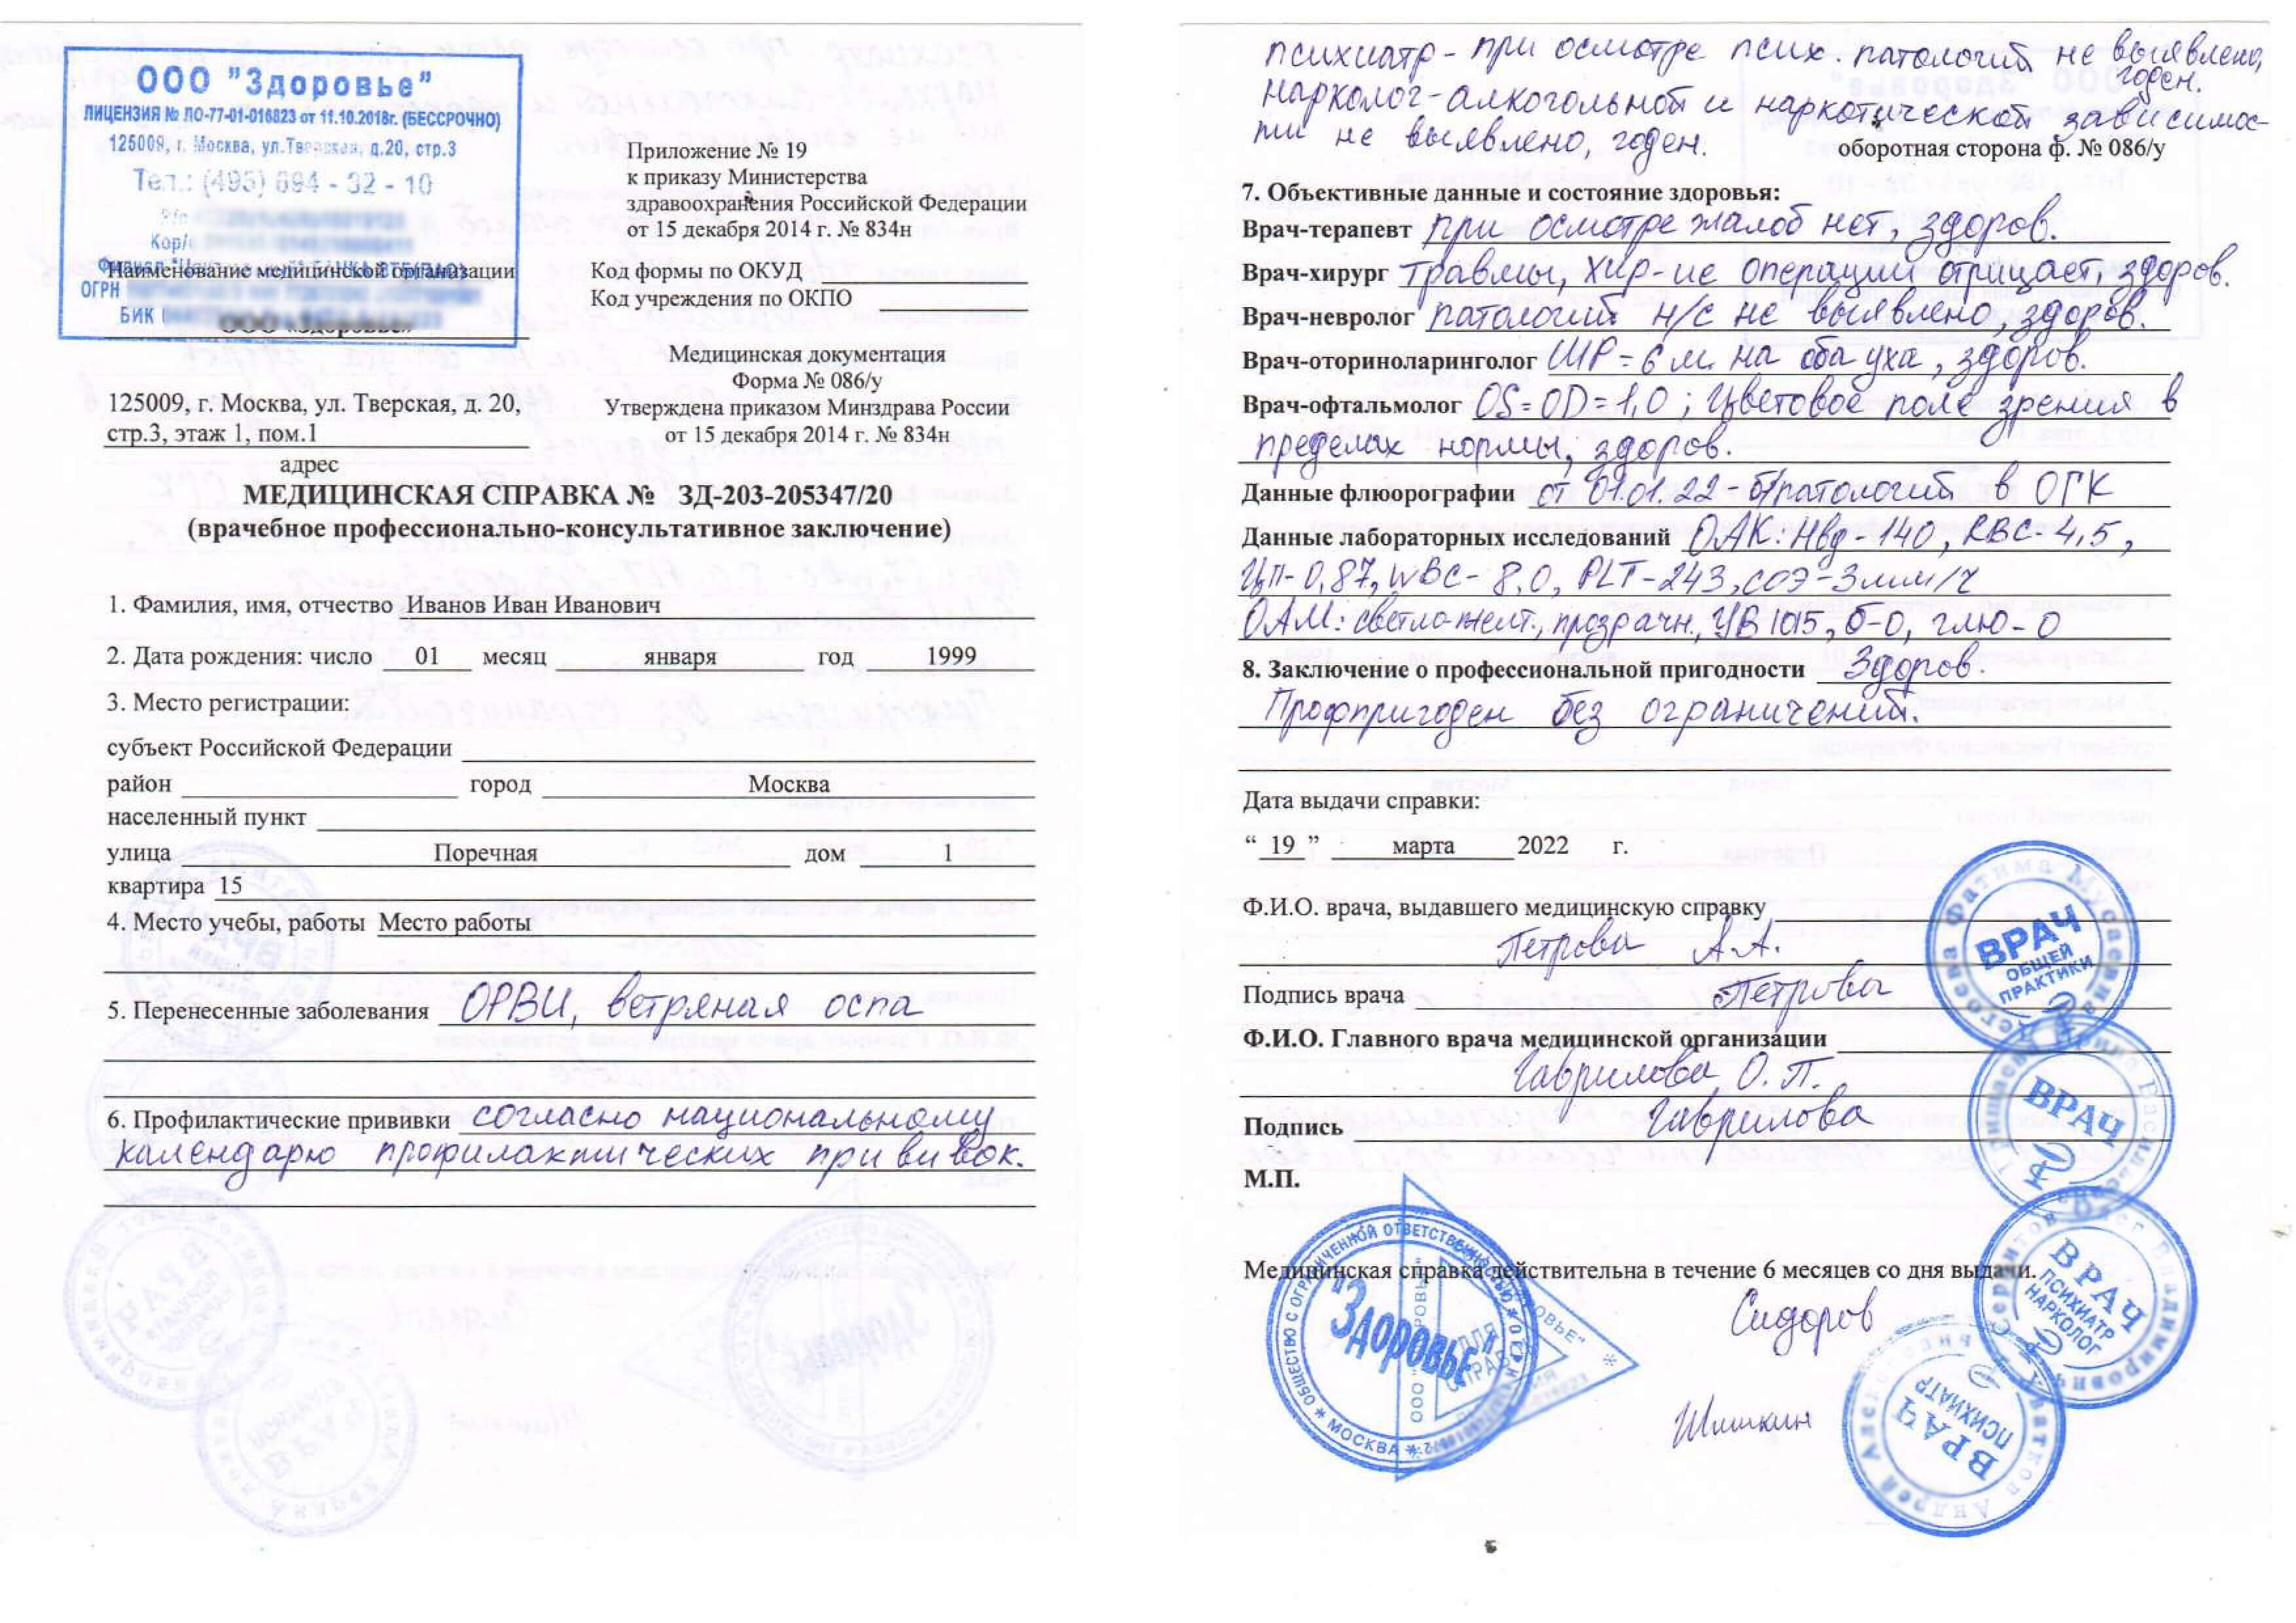 ООО "Здоровье"
ЛИЦЕНЗИЯ № ЛО-77-01-016823 от 11.10.2018г. (БЕССРОЧНО)
125009, г. Москва, ул.Тверская, д.20, стр.3
Тел.: (495) 694 - 32 - 10
Кор/
ОГРН
БИК
Наименование медицинской организации
ООО «Здоровье»
125009, г. Москва, ул. Тверская, д. 20,
стр.3, этаж 1, пом.1
адрес
Приложение № 19
к приказу Министерства
здравоохранения Российской Федерации
от 15 декабря 2014 г. № 834н
Код формы по ОКУД
Код учреждения по ОКПО
Медицинская документация
Форма № 086/у
Утверждена приказом Минздрава России
от 15 декабря 2014 г. № 834н
МЕДИЦИНСКАЯ СПРАВКА № ЗД-203-205347/20
(врачебное профессионально-консультативное заключение)
1. Фамилия, имя, отчество Иванов Иван Иванович
2. Дата рождения: число 01 месяц января год 1999
3. Место регистрации:
субъект Российской Федерации
район город Москва
населенный пункт
улица Поречная дом 1
квартира 15
4. Место учебы, работы Место работы
5. Перенесенные заболевания ОРВИ, ветряная оспа
6. Профилактические прививки согласно национальному
календарю профилактических прививок.
психиатр - при осмотре псих. патологий не выявлено,
годен.
нарколог - алкогольной и наркотической зависимос-
ти не выявлено, годен.
оборотная сторона ф. № 086/у
7. Объективные данные и состояние здоровья:
Врач-терапевт при осмотре жалоб нет, здоров.
Врач-хирург травмы, хир-ие операции отрицает, здоров.
Врач-невролог патологий н/с не выявлено, здоров.
Врач-оториноларинголог ШР = 6 м. на оба уха, здоров.
Врач-офтальмолог OS = OD = 1,0 ; Цветовое поле зрения в
пределах нормы, здоров.
Данные флюорографии от 01.01.22 - б/патологий в ОГК
Данные лабораторных исследований ОАК: Hbg - 140, RBC - 4,5,
ЦП - 0,87, WBC - 8,0, PLT - 243, СОЭ - 3 мм/ч
ОАМ: светло-желт., прозрачн., УВ 1015, б-0, глю-0
8. Заключение о профессиональной пригодности Здоров.
Профпригоден без ограничений.
Дата выдачи справки:
“ 19 ” марта 2022 г.
Ф.И.О. врача, выдавшего медицинскую справку
Петрова А.А.
Подпись врача Петрова
Ф.И.О. Главного врача медицинской организации
Гаврилова О.П.
Подпись Гаврилова
М.П.
Медицинская справка действительна в течение 6 месяцев со дня выдачи.
Сидоров
Шишкин
ОБЩЕСТВО С ОГРАНИЧЕННОЙ ОТВЕТСТВЕННОСТЬЮ
"ЗДОРОВЬЕ"
МОСКВА
ДЛЯ
СПРАВОК
Фатима Мусаевна
ВРАЧ
ОБЩЕЙ
ПРАКТИКИ
ВРАЧ
Олег Владимирович
ВРАЧ
ПСИХИАТР
НАРКОЛОГ
Андрей Алексеевич
ВРАЧ
ПСИХИАТР